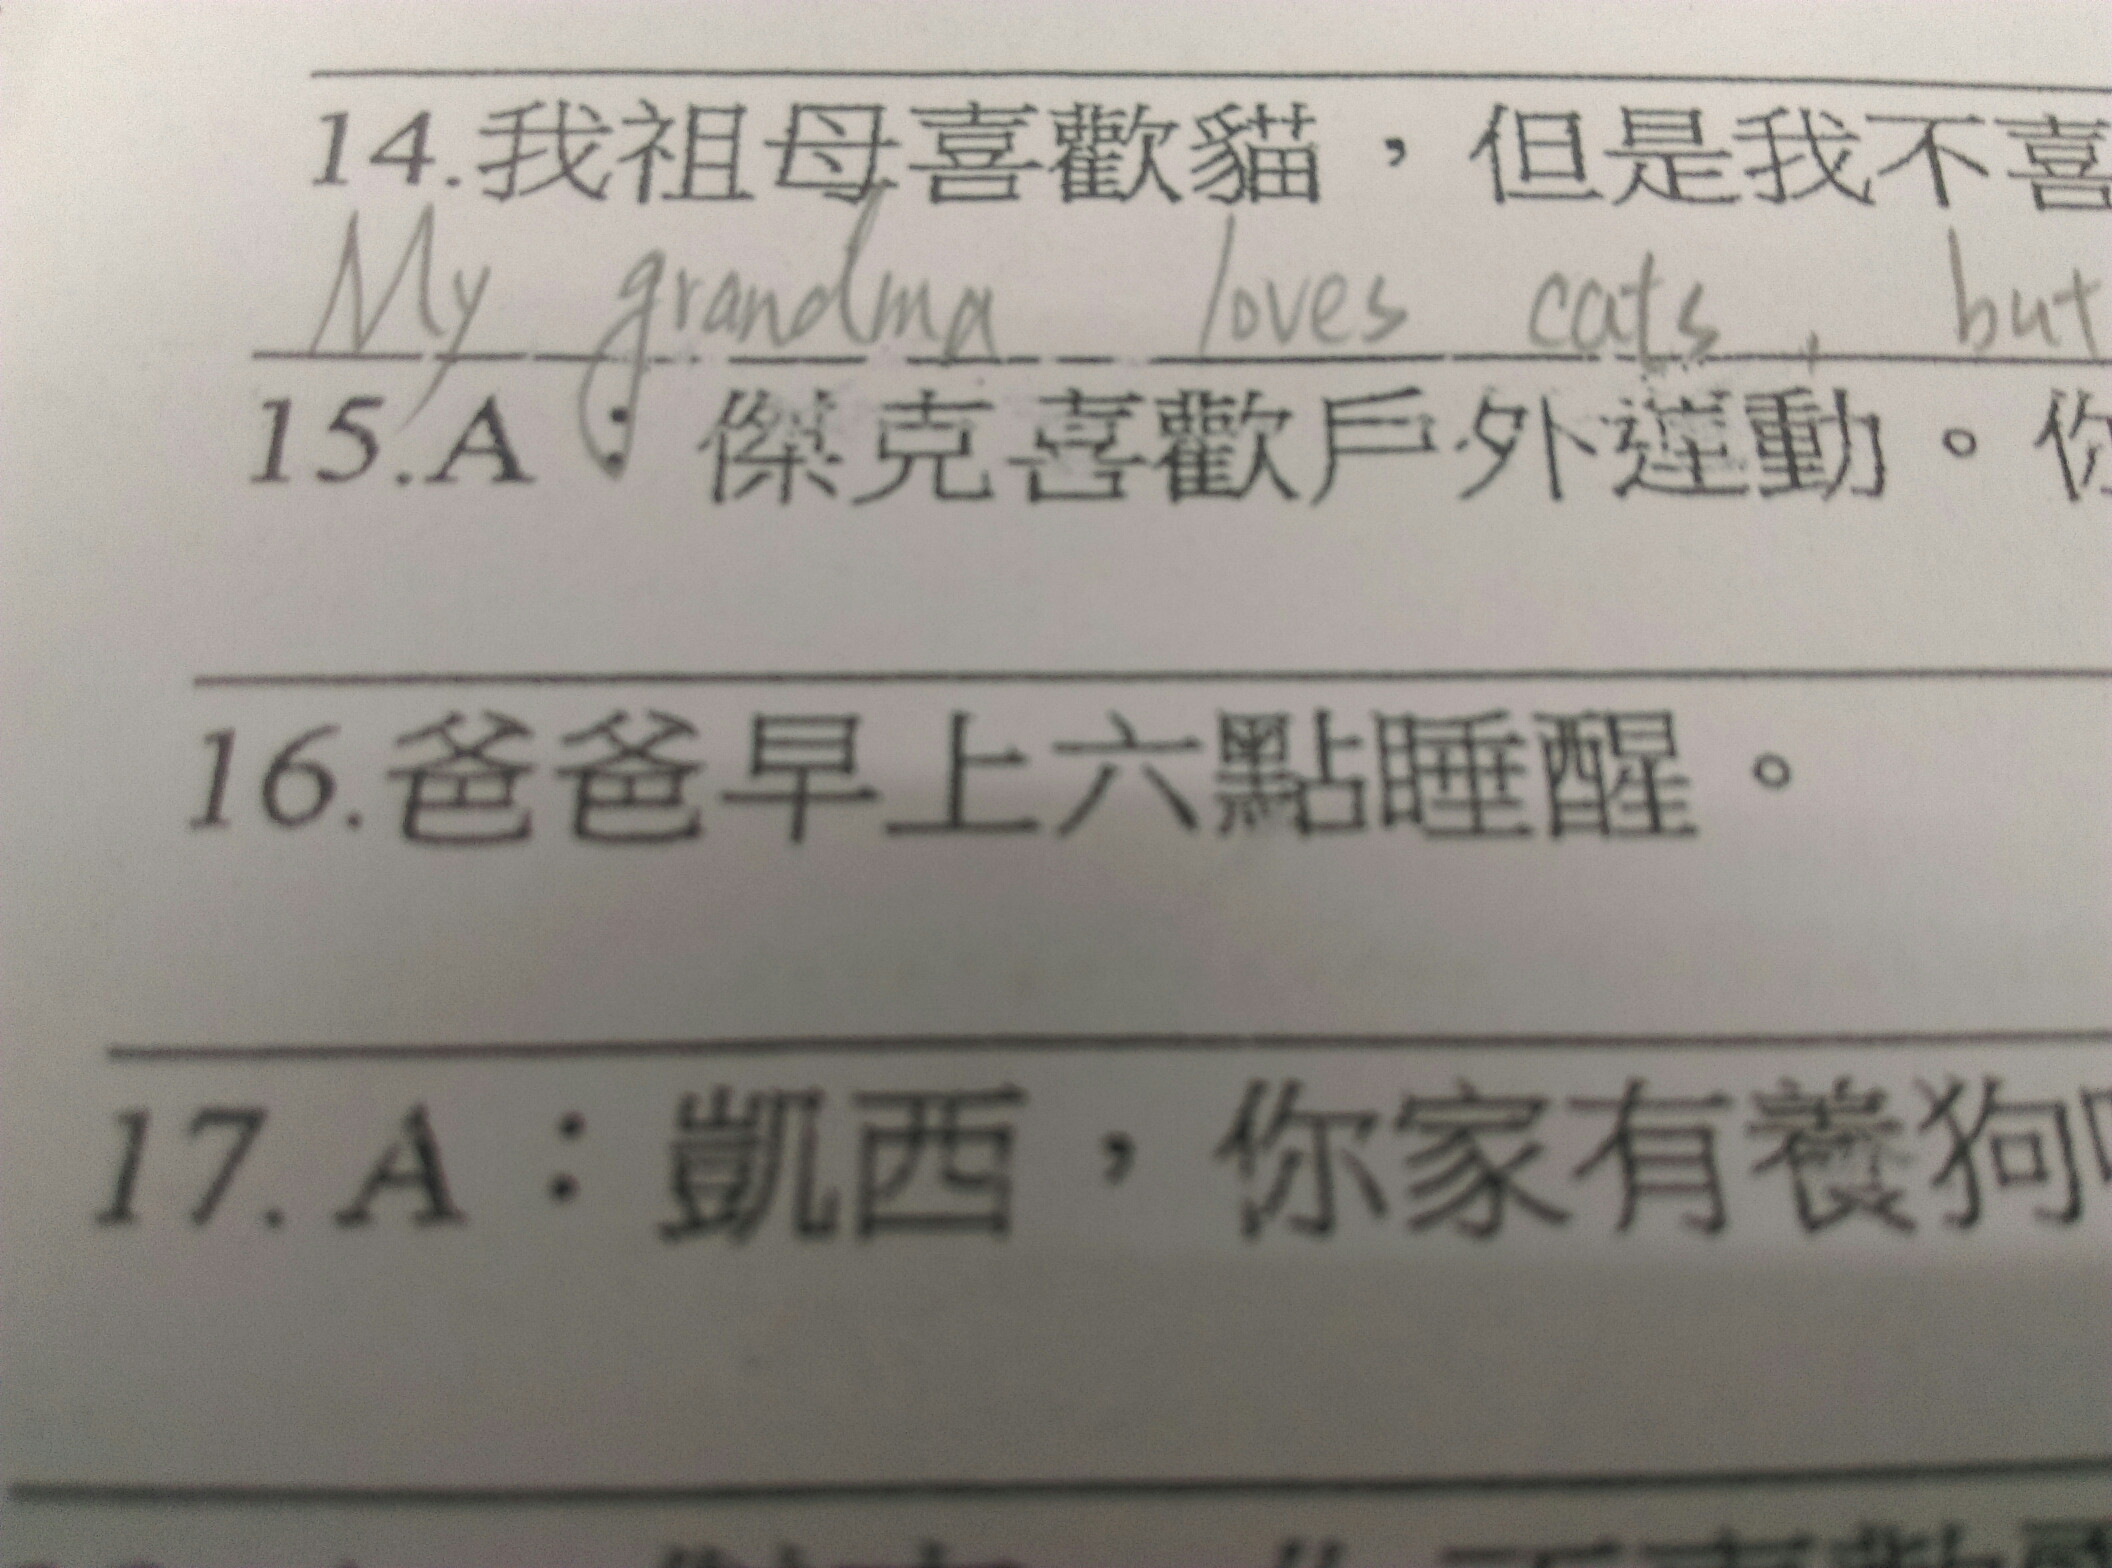 14.我祖母喜歡貓，但是我不喜
My grandma loves cats, but
15.A：傑克喜歡戶外運動。你
16.爸爸早上六點睡醒。
17.A：凱西，你家有養狗